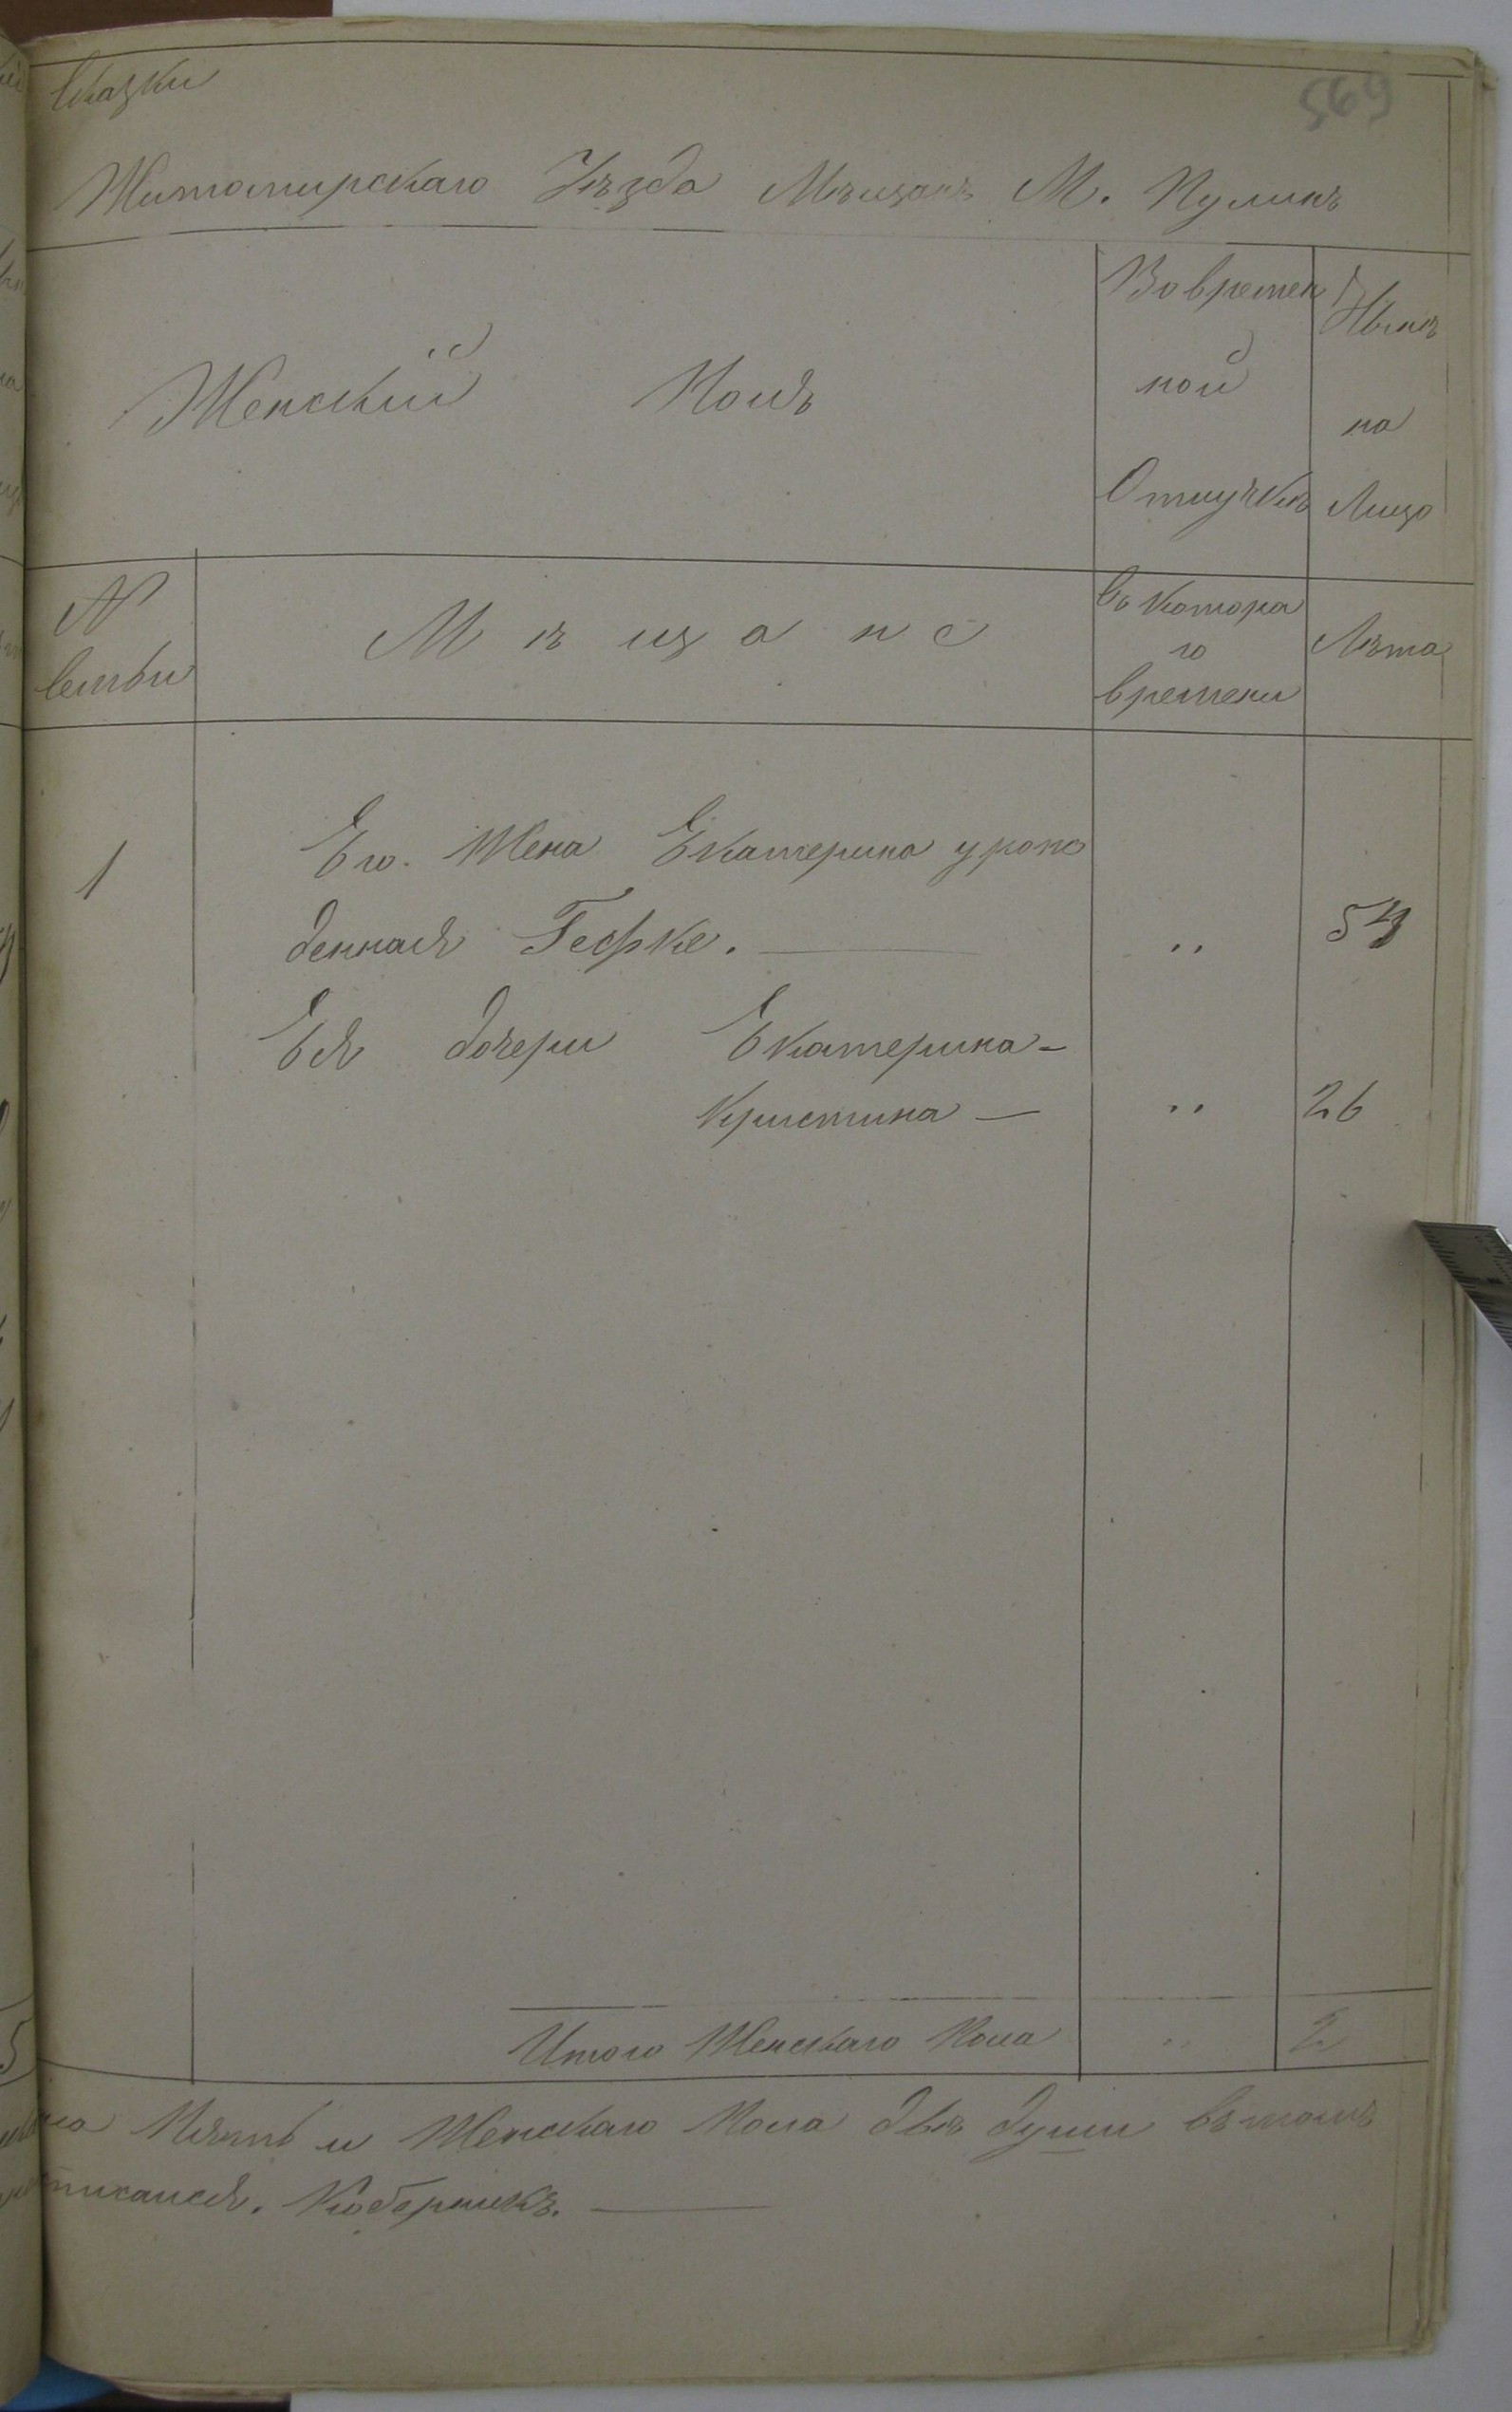 Сказки
569
Житомирскаго Уѣзда Мѣщанъ М. Пулинъ
Женскій Полъ
Во времен
ной
Отлучкѣ
Нынѣ
на
Лицо
№
Семьи
Мѣщане
Съ котора
го
времени
Лѣта
1
Его Жена Екатерина урож
денная Гефке. —
" 54
Ея дочери Екатерина -
Кристина — " 26
Итого Женскаго Пола " 2
Пять и Женскаго Пола двѣ души въ томъ